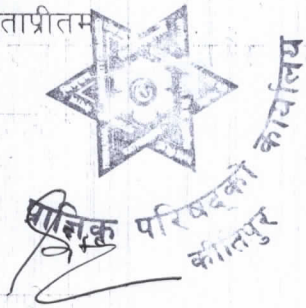 ताप्रीतम
प्राज्ञिक परिषद्को कार्यालय
कीर्तिपुर